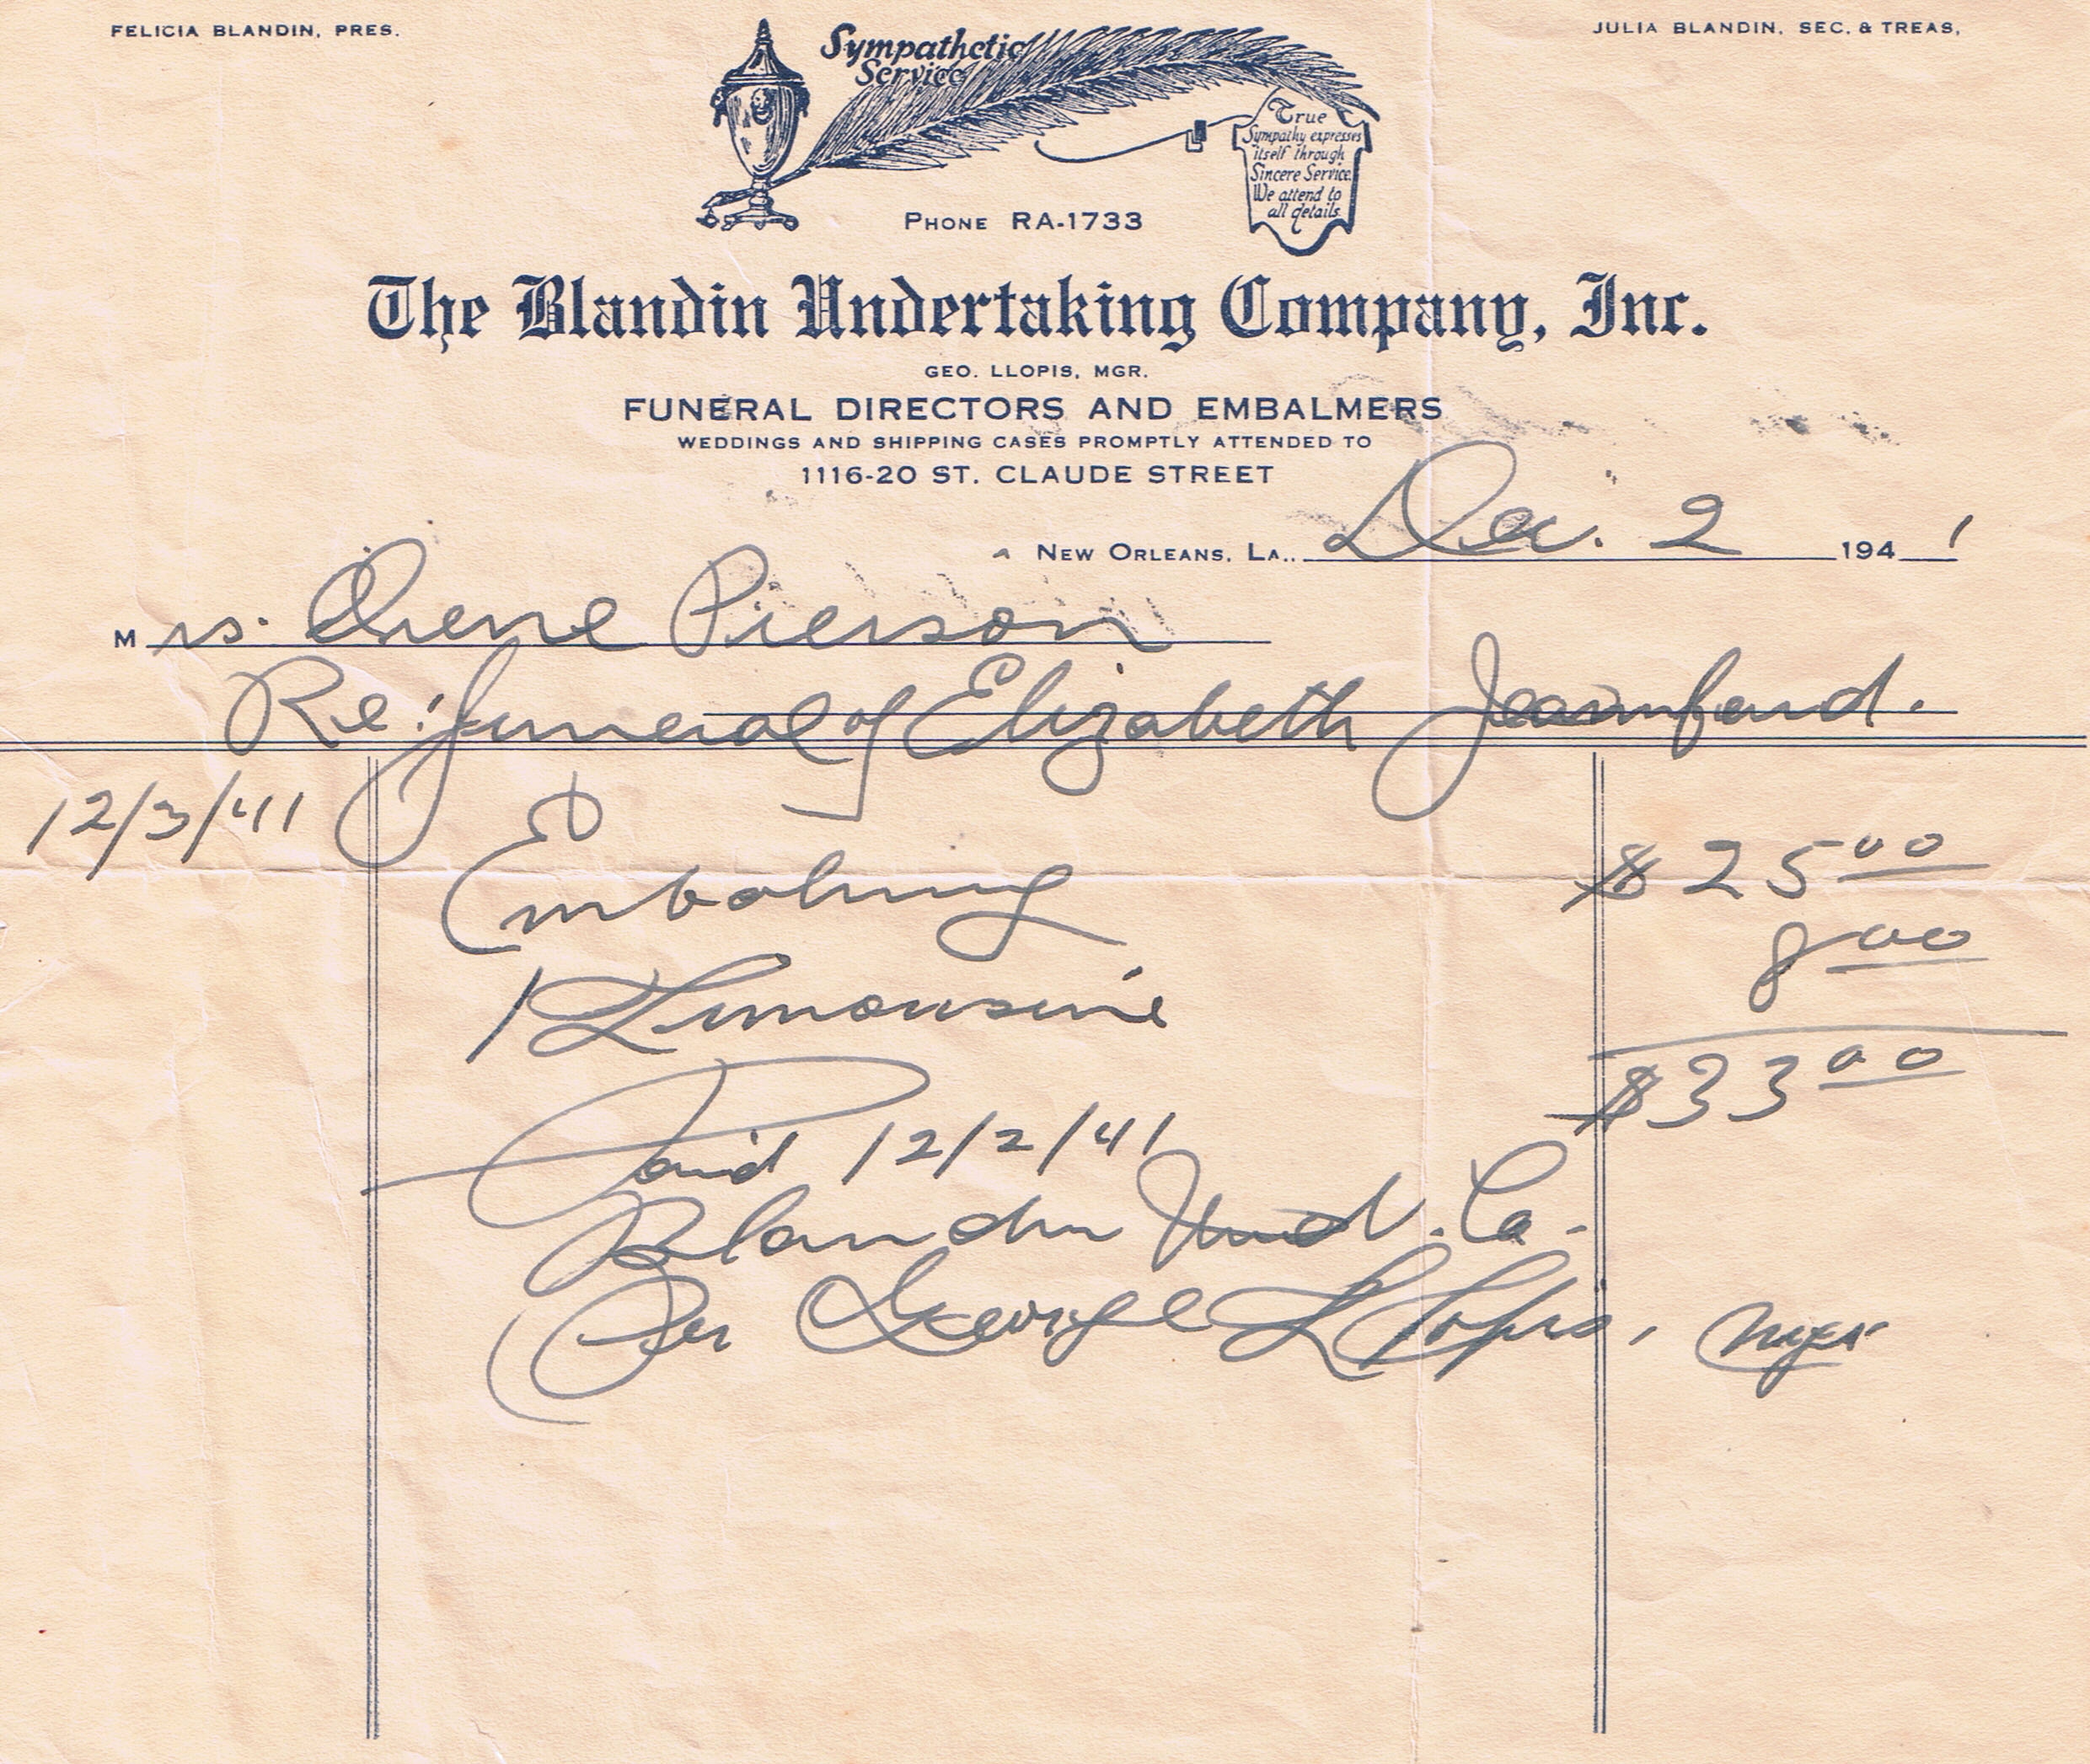 FELICIA BLANDIN, PRES.
JULIA BLANDIN, SEC. & TREAS.
Sympathetic
Service
True
Sympathy expresses
itself through
Sincere Service.
We attend to
all details.
PHONE RA-1733
The Blandin Undertaking Company, Inc.
GEO. LLOPIS, MGR.
FUNERAL DIRECTORS AND EMBALMERS
WEDDINGS AND SHIPPING CASES PROMPTLY ATTENDED TO
1116-20 ST. CLAUDE STREET
NEW ORLEANS, LA., Dec. 2 1941
Mrs. Irene Pierson
Re: funeral of Elizabeth
12/3/41
Embalming $25.00
1 Limousine 8.00
$33.00
Paid 12/2/41
Blandin Und. Co.
Per George Llopis, Mgr